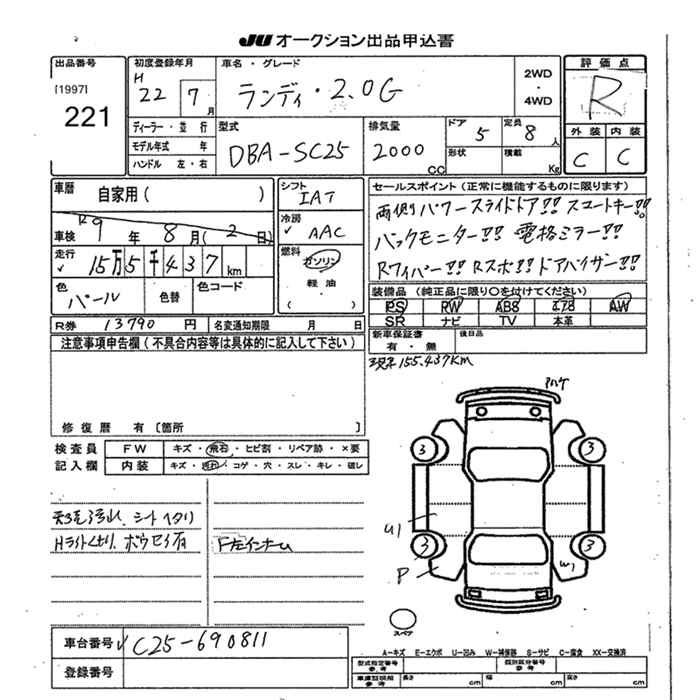 JU オークション出品申込書
出品番号
[1997]
221
初度登録年月
H
22 7月
車名・グレード
ランディ・2.0G
2WD
・
4WD
評価点
R
ディーラー・並行
モデル年式 年
ハンドル 左・右
型式
DBA-SC25
排気量
2000 CC
ドア 5
形状
定員 8人
積載 Kg
外装 内装
C C
車歴 自家用( )
車検 R9年 8月(2日)
走行 15万5千437km
色 パール
色替
色コード
シフト
IAT
冷房
AAC
燃料
ガソリン
軽油
( )
セールスポイント(正常に機能するものに限ります)
両側パワースライドドア!! スマートキー!!
バックモニター!! 電格ミラー!!
Rワイパー!! Rスポ!! ドアバイザー!!
装備品(純正品に限り○を付けてください)
PS PW ABS エアB AW
SR ナビ TV 本革
R券 13790円
名変通知期限 月 日
新車保証書
有・無
後日品
注意事項申告欄(不具合内容等は具体的に記入して下さい)
現車155.437KM
修復歴 有 [箇所
検査員
記入欄
FW キズ・飛石・ヒビ割・リペア跡・×要
内装 キズ・汚れ・コゲ・穴・スレ・キレ・破レ
シートヘタリ
Hライトくもり、ボウセイ有
F左インナーU
ハゲ
3 3
U1
3 3
P
W1
スペア
車台番号 C25-690811
登録番号
A-キズ E-エクボ U-凹み W-補修器 S-サビ C-腐食 XX-交換済
型式指定番号
参考
類別区分番号
参考
車庫証明用
参考
長さ cm 幅 cm 高さ cm